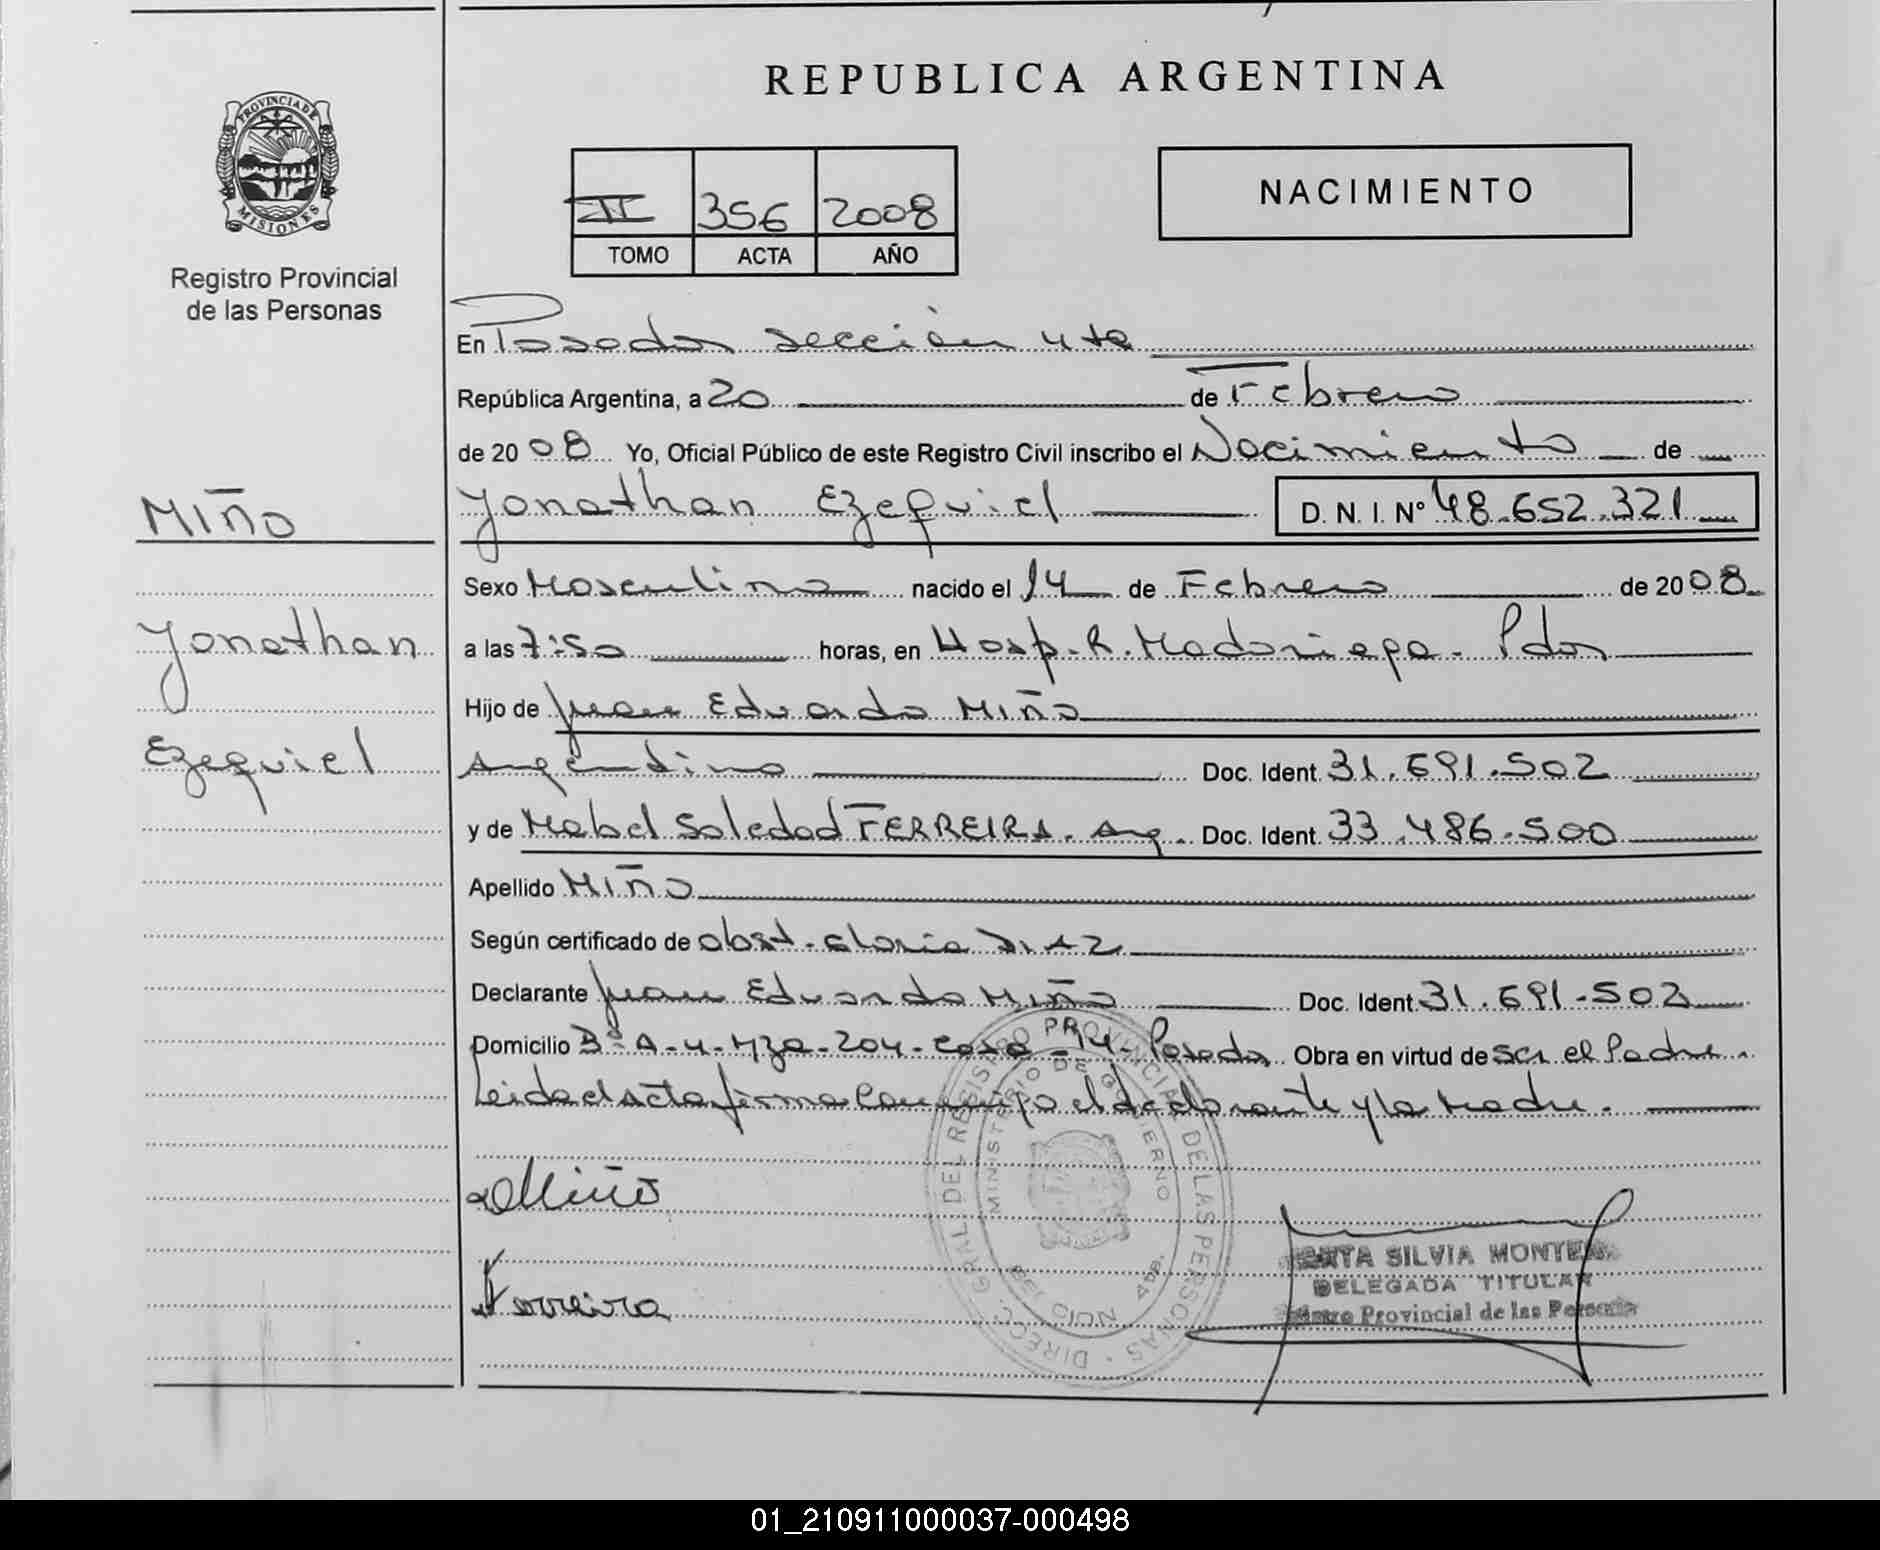 REPUBLICA ARGENTINA
PROVINCIA DE MISIONES
Registro Provincial
de las Personas
II 356 2008
TOMO ACTA AÑO
NACIMIENTO
En Posadas sección 4ta
República Argentina, a 20 de Febrero
de 2008 Yo, Oficial Público de este Registro Civil inscribo el Nacimiento de
Jonathan Ezequiel D. N. I. Nº 48.652.321
MIÑO
Jonathan
Ezequiel
Sexo Masculino nacido el 14 de Febrero de 2008
a las 7:50 horas, en Hosp. R. Madariaga. Pdas
Hijo de Juan Eduardo MIÑO
Argentino Doc. Ident. 31.691.502
y de Mabel Soledad FERREIRA. Arg. Doc. Ident. 33.486.500
Apellido MIÑO
Según certificado de obst. Gloria DIAZ
Declarante Juan Eduardo MIÑO Doc. Ident. 31.691.502
Domicilio Bº A-4-Mza-204-Casa-14-Posadas Obra en virtud de ser el Padre.
Leida el Acta firma conmigo el declarante y la Madre.
Miño
Ferreira
DIRECC. GRAL DEL REGISTRO PROVINCIAL DE LAS PERSONAS
MINISTERIO DE GOBIERNO
SILVIA
DELEGADA TITULAR
Provincial de las Personas
01_210911000037-000498